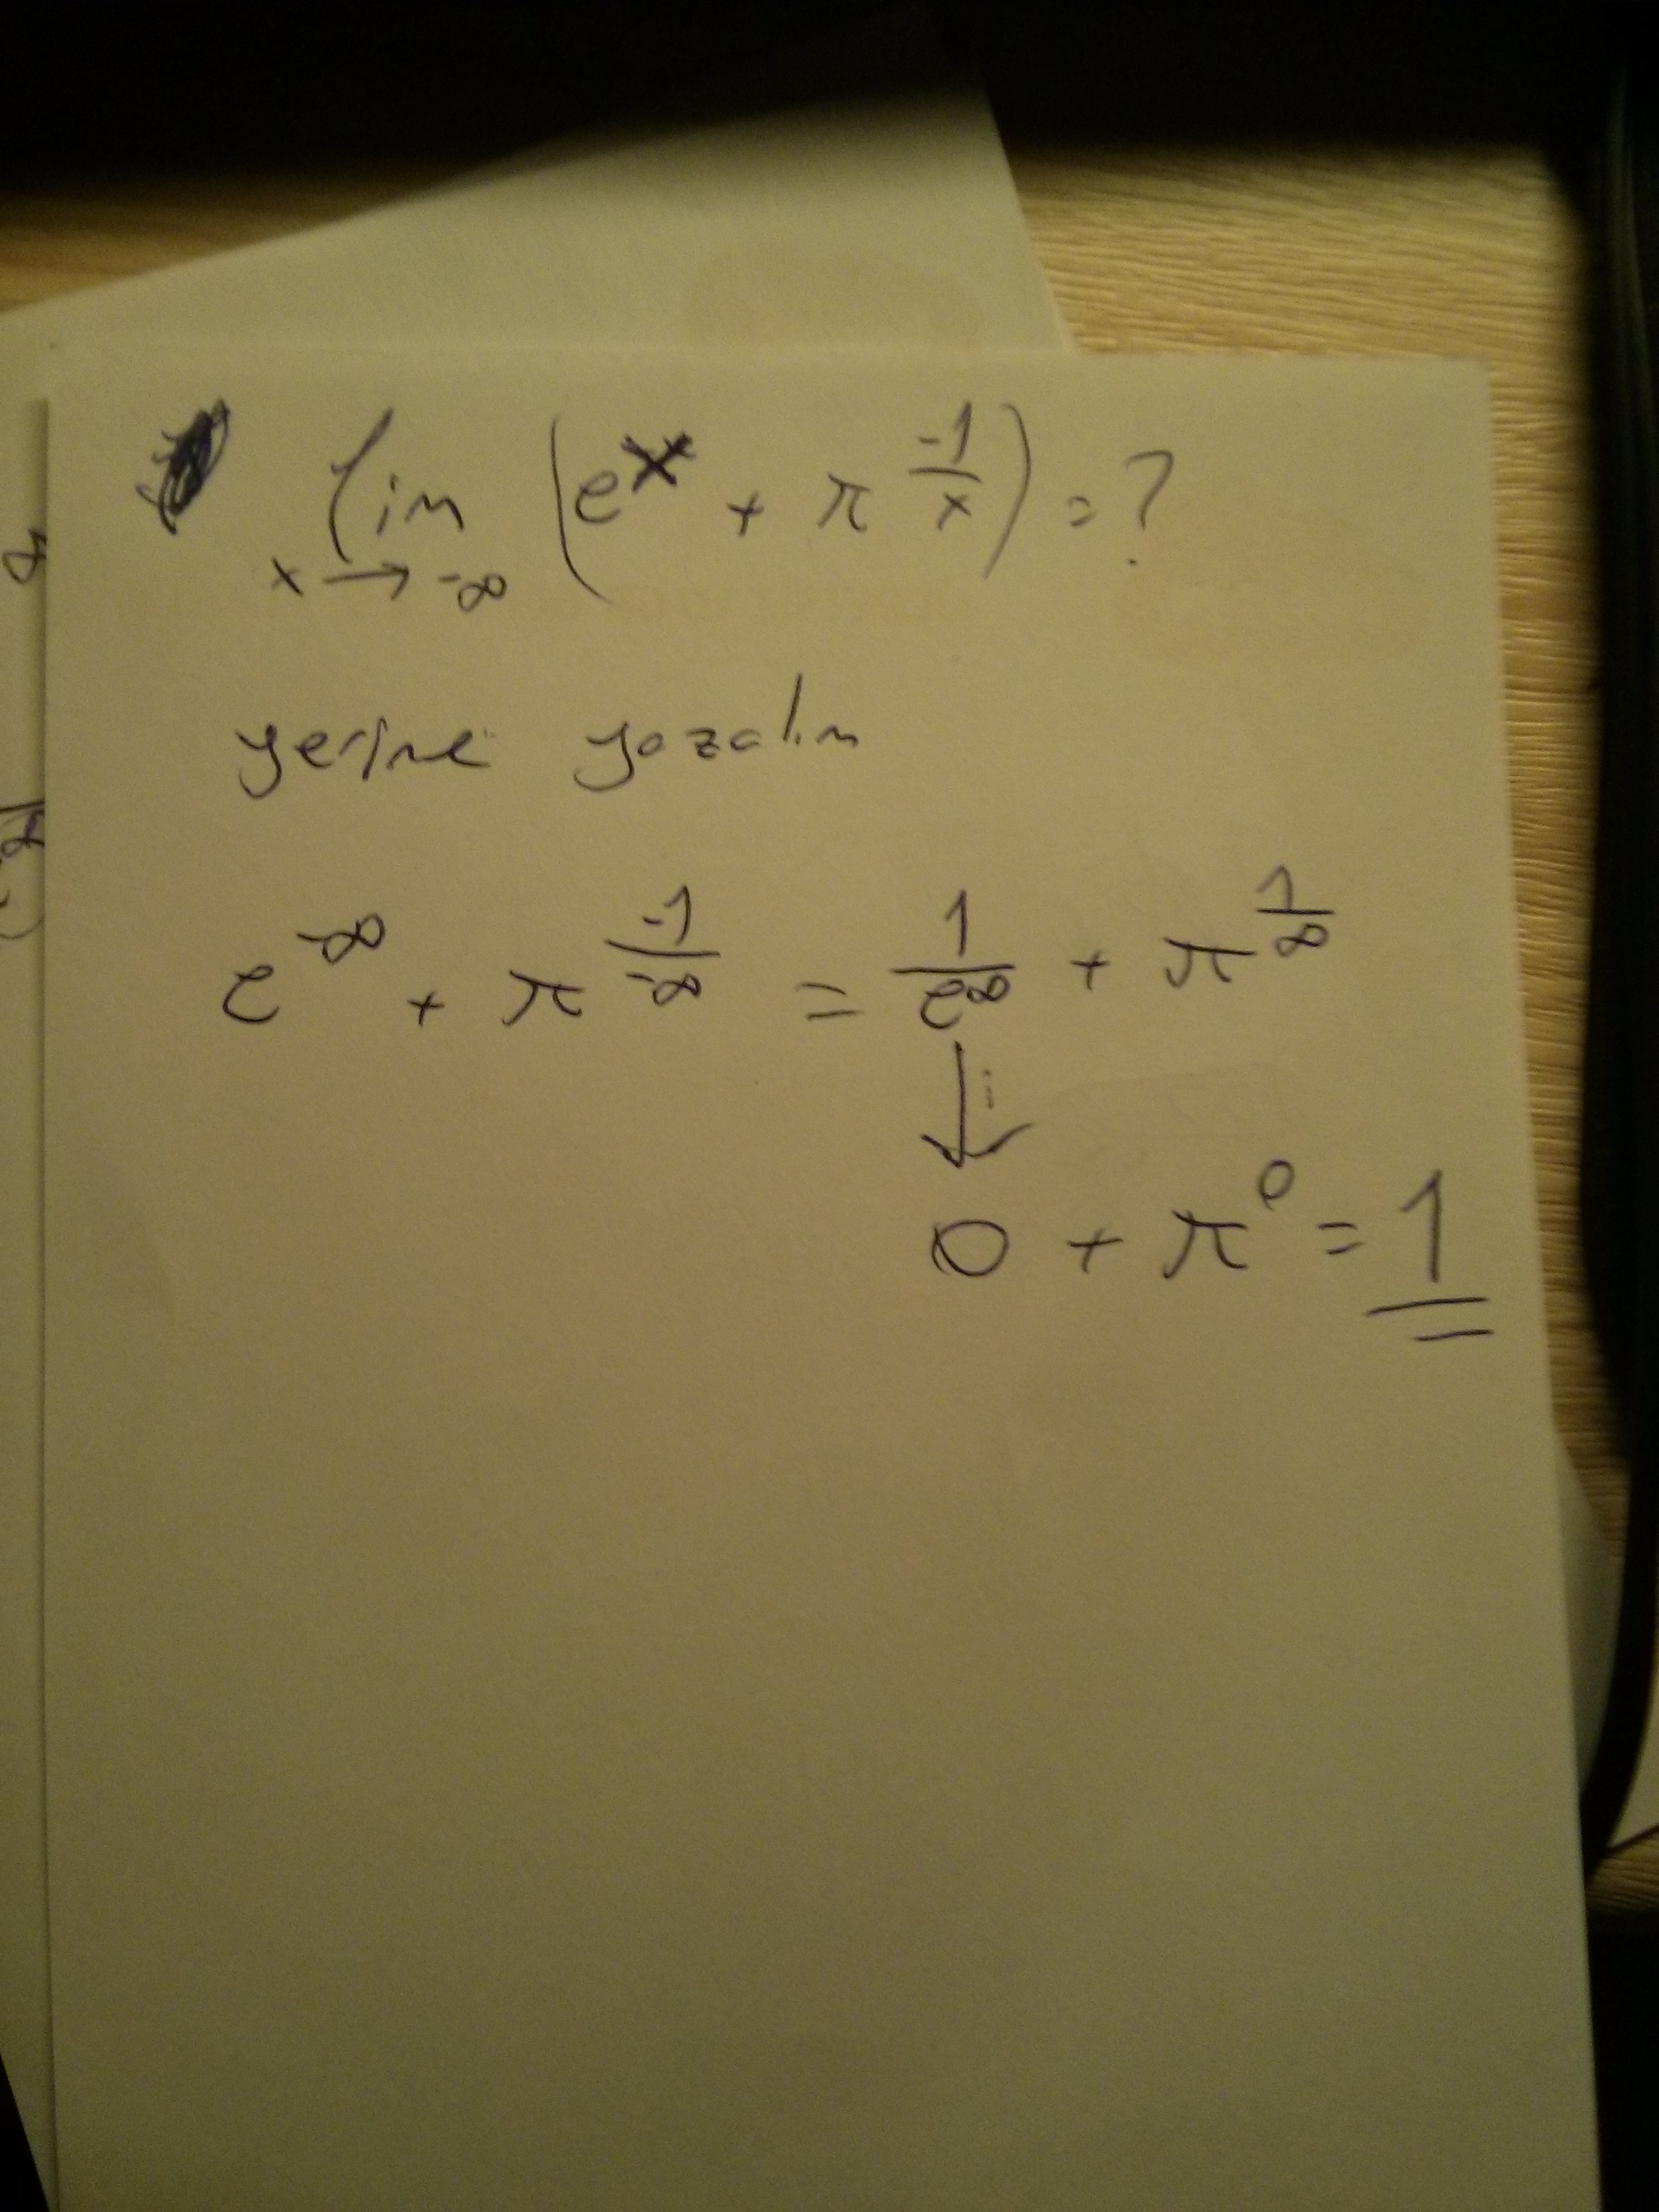 lim (e^x + π^(-1/x)) = ?
x → -∞
yerine yazalım
e^-∞ + π^(-1/-∞) = 1/e^∞ + π^(1/∞)
↓
0 + π^0 = 1